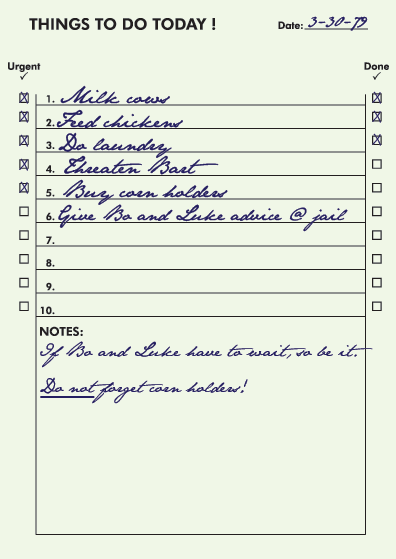 THINGS TO DO TODAY !
Date: 3-30-79
Urgent
Done
1. Milk cows
2. Feed chickens
3. Do laundry
4. Threaten Bart
5. Buy corn holders
6. Give Bo and Luke advice @ jail
7.
8.
9.
10.
NOTES:
If Bo and Luke have to wait, so be it.
Do not forget corn holders!